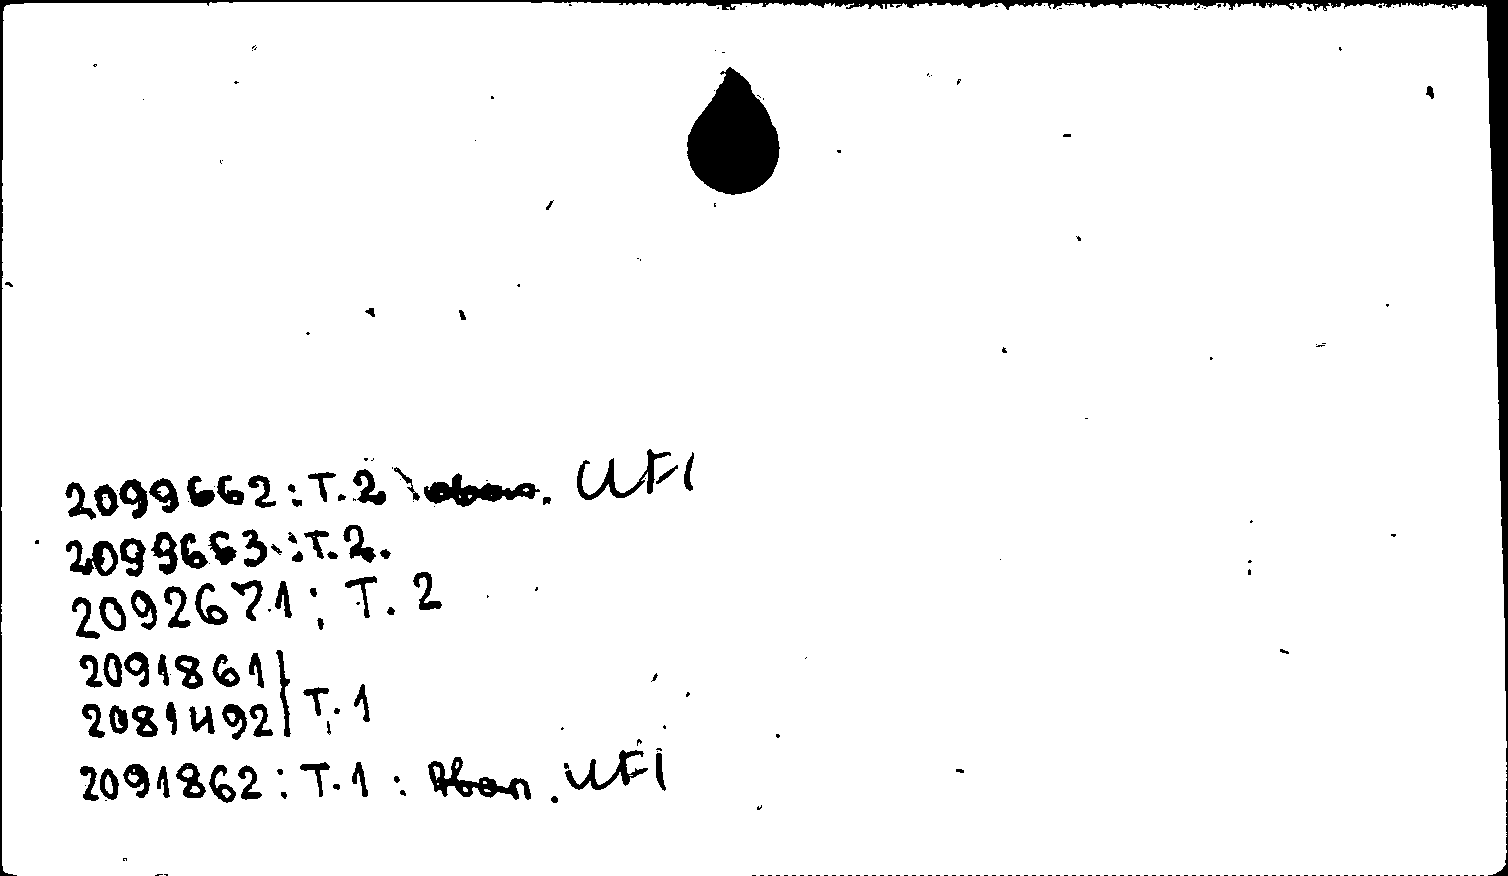 2099662 : T.2 abon. UFI
2099663 : T.2.
2092671 : T. 2
2091861 |
2081492 | T.1
2091862 : T.1 : Abon. UFI